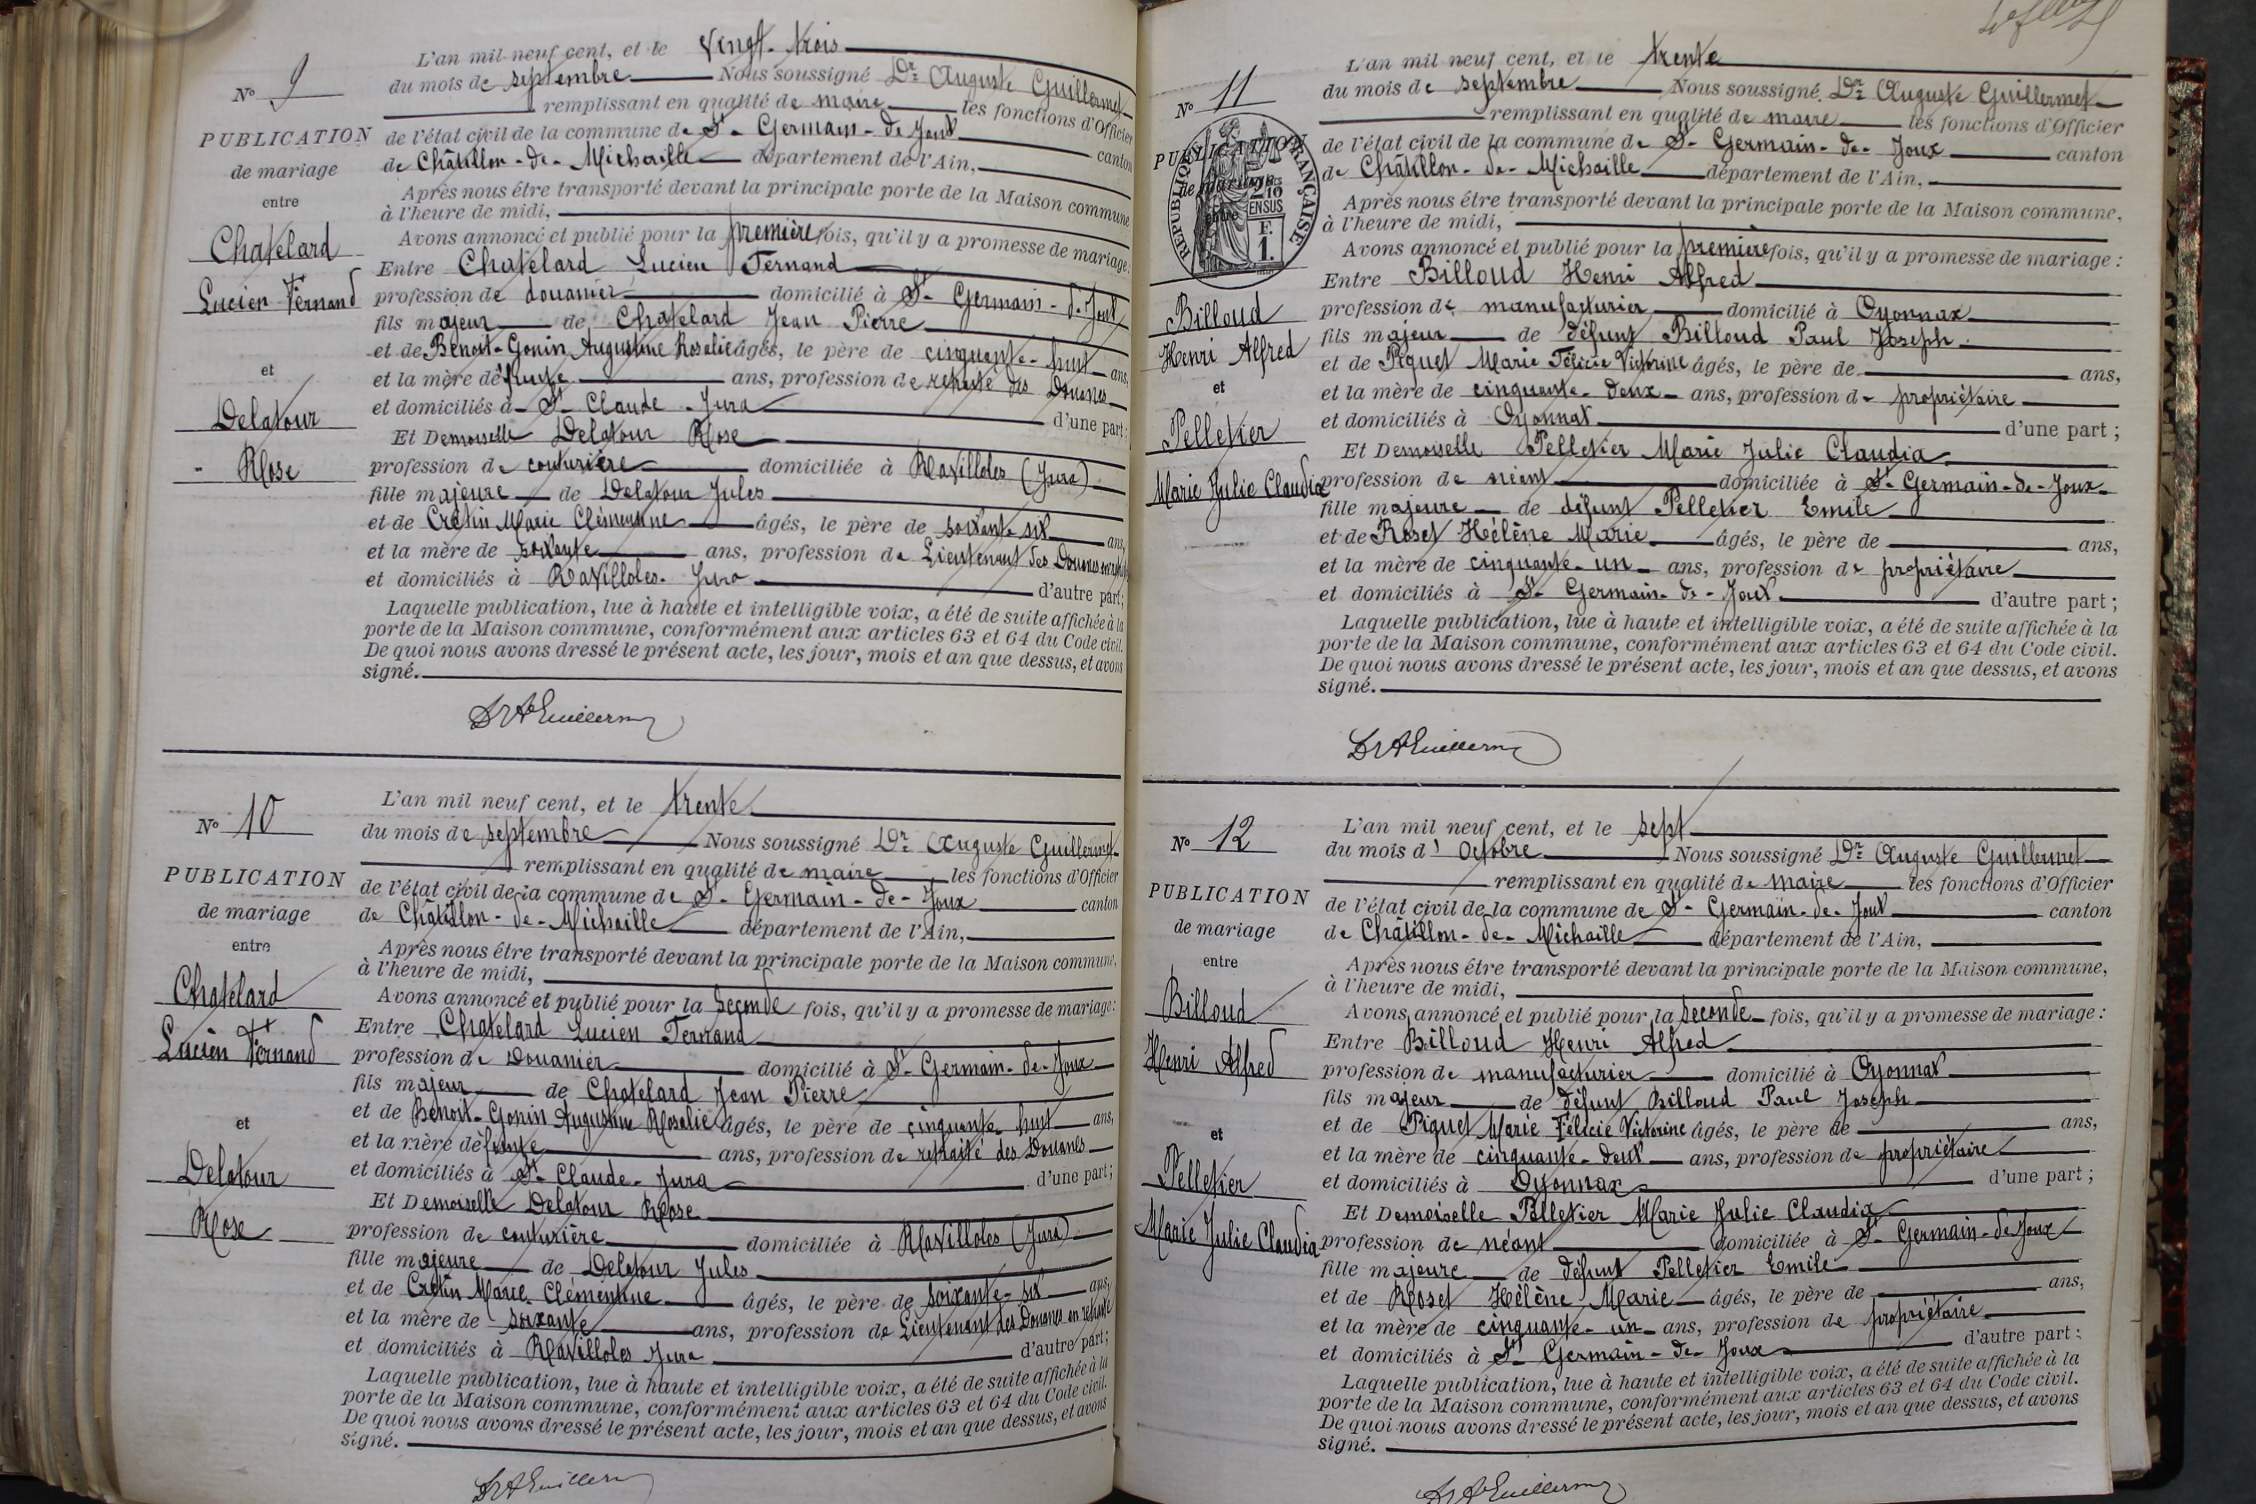 N° 9
PUBLICATION
de mariage
entre
Chatelard
Lucien Fernand
et
Delatour
- Rose
L'an mil neuf cent, et le vingt-trois
du mois de septembre Nous soussigné Dr Auguste Guillermet
remplissant en qualité de maire les fonctions d'Officier
de l'état civil de la commune de St-Germain-de-Joux canton
de Châtillon-de-Michaille département de l'Ain,
Après nous être transporté devant la principale porte de la Maison commune
à l'heure de midi,
Avons annoncé et publié pour la première fois, qu'il y a promesse de mariage:
Entre Chatelard Lucien Fernand
profession de douanier domicilié à St-Germain-d-Joux
fils majeur de Chatelard Jean Pierre
et de Benoit-Gonin Augustine Rosalie âgés, le père de cinquante-huit ans,
et la mère défunte ans, profession de retraité des Douanes
et domiciliés à St Claude-Jura d'une part;
Et Demoiselle Delatour Rose
profession de couturière domiciliée à Ravilloles (Jura)
fille majeure de Delatour Jules
et de Cretin Marie Clémentine âgés, le père de soixante-six ans,
et la mère de soixante ans, profession de Lieutenant des Douanes en retraite
et domiciliés à Ravilloles-Jura d'autre part;
Laquelle publication, lue à haute et intelligible voix, a été de suite affichée à la
porte de la Maison commune, conformément aux articles 63 et 64 du Code civil.
De quoi nous avons dressé le présent acte, les jour, mois et an que dessus, et avons
signé.
Dr A Guillerm
N° 10
PUBLICATION
de mariage
entre
Chatelard
Lucien Fernand
et
Delatour
Rose
L'an mil neuf cent, et le trente
du mois de septembre Nous soussigné Dr Auguste Guillermet
remplissant en qualité de maire les fonctions d'Officier
de l'état civil de la commune de St-Germain-de-Joux canton
de Châtillon-de-Michaille département de l'Ain,
Après nous être transporté devant la principale porte de la Maison commune,
à l'heure de midi,
Avons annoncé et publié pour la seconde fois, qu'il y a promesse de mariage:
Entre Chatelard Lucien Fernand
profession de Douanier domicilié à St-Germain-de-Joux
fils majeur de Chatelard Jean Pierre
et de Benoit-Gonin Augustine Rosalie âgés, le père de cinquante-huit ans,
et la mère défunte ans, profession de retraité des Douanes
et domiciliés à St-Claude-Jura d'une part;
Et Demoiselle Delatour Rose
profession de couturière domiciliée à Ravilloles (Jura)
fille majeure de Delatour Jules
et de Cretin Marie Clémentine âgés, le père de soixante-six ans,
et la mère de soixante ans, profession de Lieutenant des Douanes en retraite
et domiciliés à Ravilloles Jura d'autre part;
Laquelle publication, lue à haute et intelligible voix, a été de suite affichée à la
porte de la Maison commune, conformément aux articles 63 et 64 du Code civil.
De quoi nous avons dressé le présent acte, les jour, mois et an que dessus, et avons
signé.
Dr A Guillerm
N° 11
PUBLICATION
de mariage
entre
REPUBLIQUE FRANÇAISE
2/10
EN SUS
F.
1.
Billoud
Henri Alfred
et
Pelletier
Marie Julie Claudia
L'an mil neuf cent, et le trente
du mois de septembre Nous soussigné Dr Auguste Guillermet
remplissant en qualité de maire les fonctions d'Officier
de l'état civil de la commune de St-Germain-de-Joux canton
de Châtillon-de-Michaille département de l'Ain,
Après nous être transporté devant la principale porte de la Maison commune,
à l'heure de midi,
Avons annoncé et publié pour la première fois, qu'il y a promesse de mariage:
Entre Billoud Henri Alfred
profession de manufacturier domicilié à Oyonnax
fils majeur de défunt Billoud Paul Joseph
et de Piquet Marie Félicie Victorine âgés, le père de ans,
et la mère de cinquante-deux ans, profession de propriétaire
et domiciliés à Oyonnax d'une part;
Et Demoiselle Pelletier Marie Julie Claudia
profession de néant domiciliée à St-Germain-de-Joux
fille majeure de défunt Pelletier Emile
et de Roset Hélène Marie âgés, le père de ans,
et la mère de cinquante-un ans, profession de propriétaire
et domiciliés à St-Germain-de-Joux d'autre part;
Laquelle publication, lue à haute et intelligible voix, a été de suite affichée à la
porte de la Maison commune, conformément aux articles 63 et 64 du Code civil.
De quoi nous avons dressé le présent acte, les jour, mois et an que dessus, et avons
signé.
Dr A Guillerm
N° 12
PUBLICATION
de mariage
entre
Billoud
Henri Alfred
et
Pelletier
Marie Julie Claudia
L'an mil neuf cent, et le sept
du mois d'Octobre Nous soussigné Dr Auguste Guillermet
remplissant en qualité de maire les fonctions d'Officier
de l'état civil de la commune de St-Germain-de-Joux canton
de Châtillon-de-Michaille département de l'Ain,
Après nous être transporté devant la principale porte de la Maison commune,
à l'heure de midi,
Avons annoncé et publié pour la seconde fois, qu'il y a promesse de mariage:
Entre Billoud Henri Alfred
profession de manufacturier domicilié à Oyonnax
fils majeur de défunt Billoud Paul Joseph
et de Piquet Marie Félicie Victorine âgés, le père de ans,
et la mère de cinquante-deux ans, profession de propriétaire
et domiciliés à Oyonnax d'une part;
Et Demoiselle Pelletier Marie Julie Claudia
profession de néant domiciliée à St-Germain-de-Joux
fille majeure de défunt Pelletier Emile
et de Roset Hélène Marie âgés, le père de ans,
et la mère de cinquante-un ans, profession de propriétaire
et domiciliés à St Germain-de-Joux d'autre part;
Laquelle publication, lue à haute et intelligible voix, a été de suite affichée à la
porte de la Maison commune, conformément aux articles 63 et 64 du Code civil.
De quoi nous avons dressé le présent acte, les jour, mois et an que dessus, et avons
signé.
Dr A Guillerm